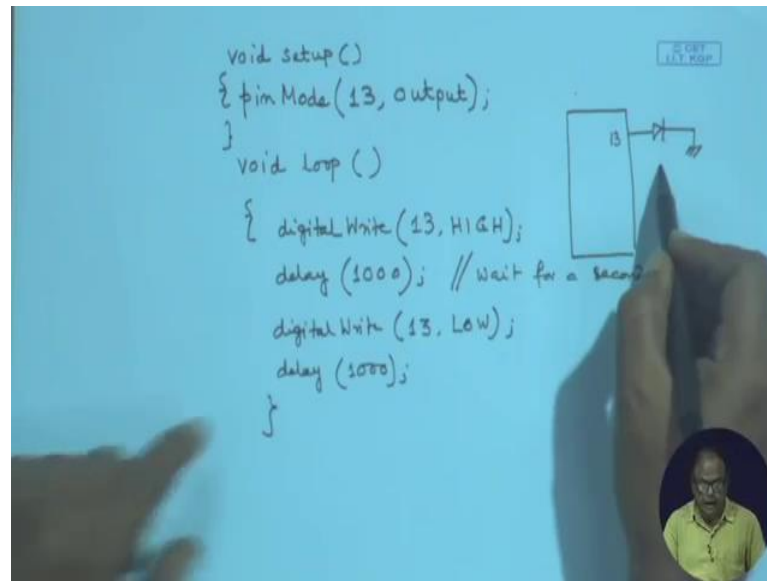 void setup()
{ pinMode(13, output);
}
void loop()
{ digitalWrite(13, HIGH);
delay (1000); // wait for a second
digitalWrite (13, LOW);
delay (1000);
}
© CET
I.I.T. KGP
13